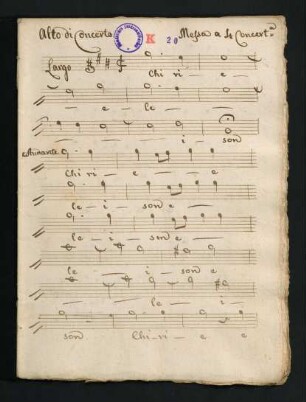 Alto di Concerto K 20 Messa a 4 Concert.ta
Largo
Chi ri e
e le
i son
Andante
Chi ri e
le i son e
le i son e
le i son e
le i
son Chi ri e e